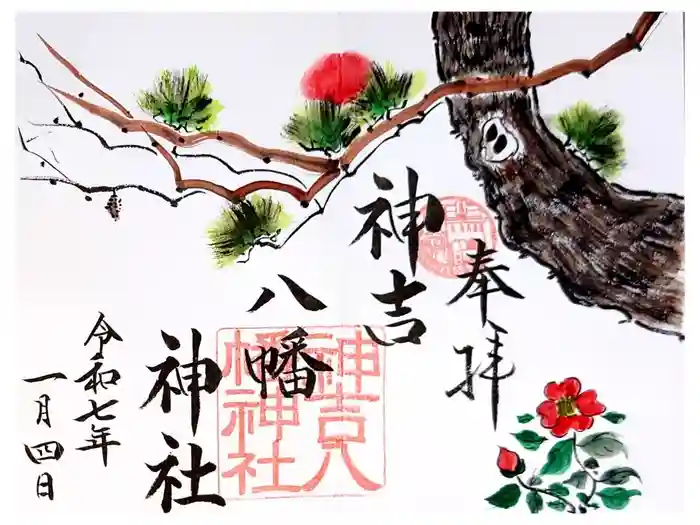 奉拝
神吉
八幡
神社
令和七年
一月四日
神吉八
幡神社